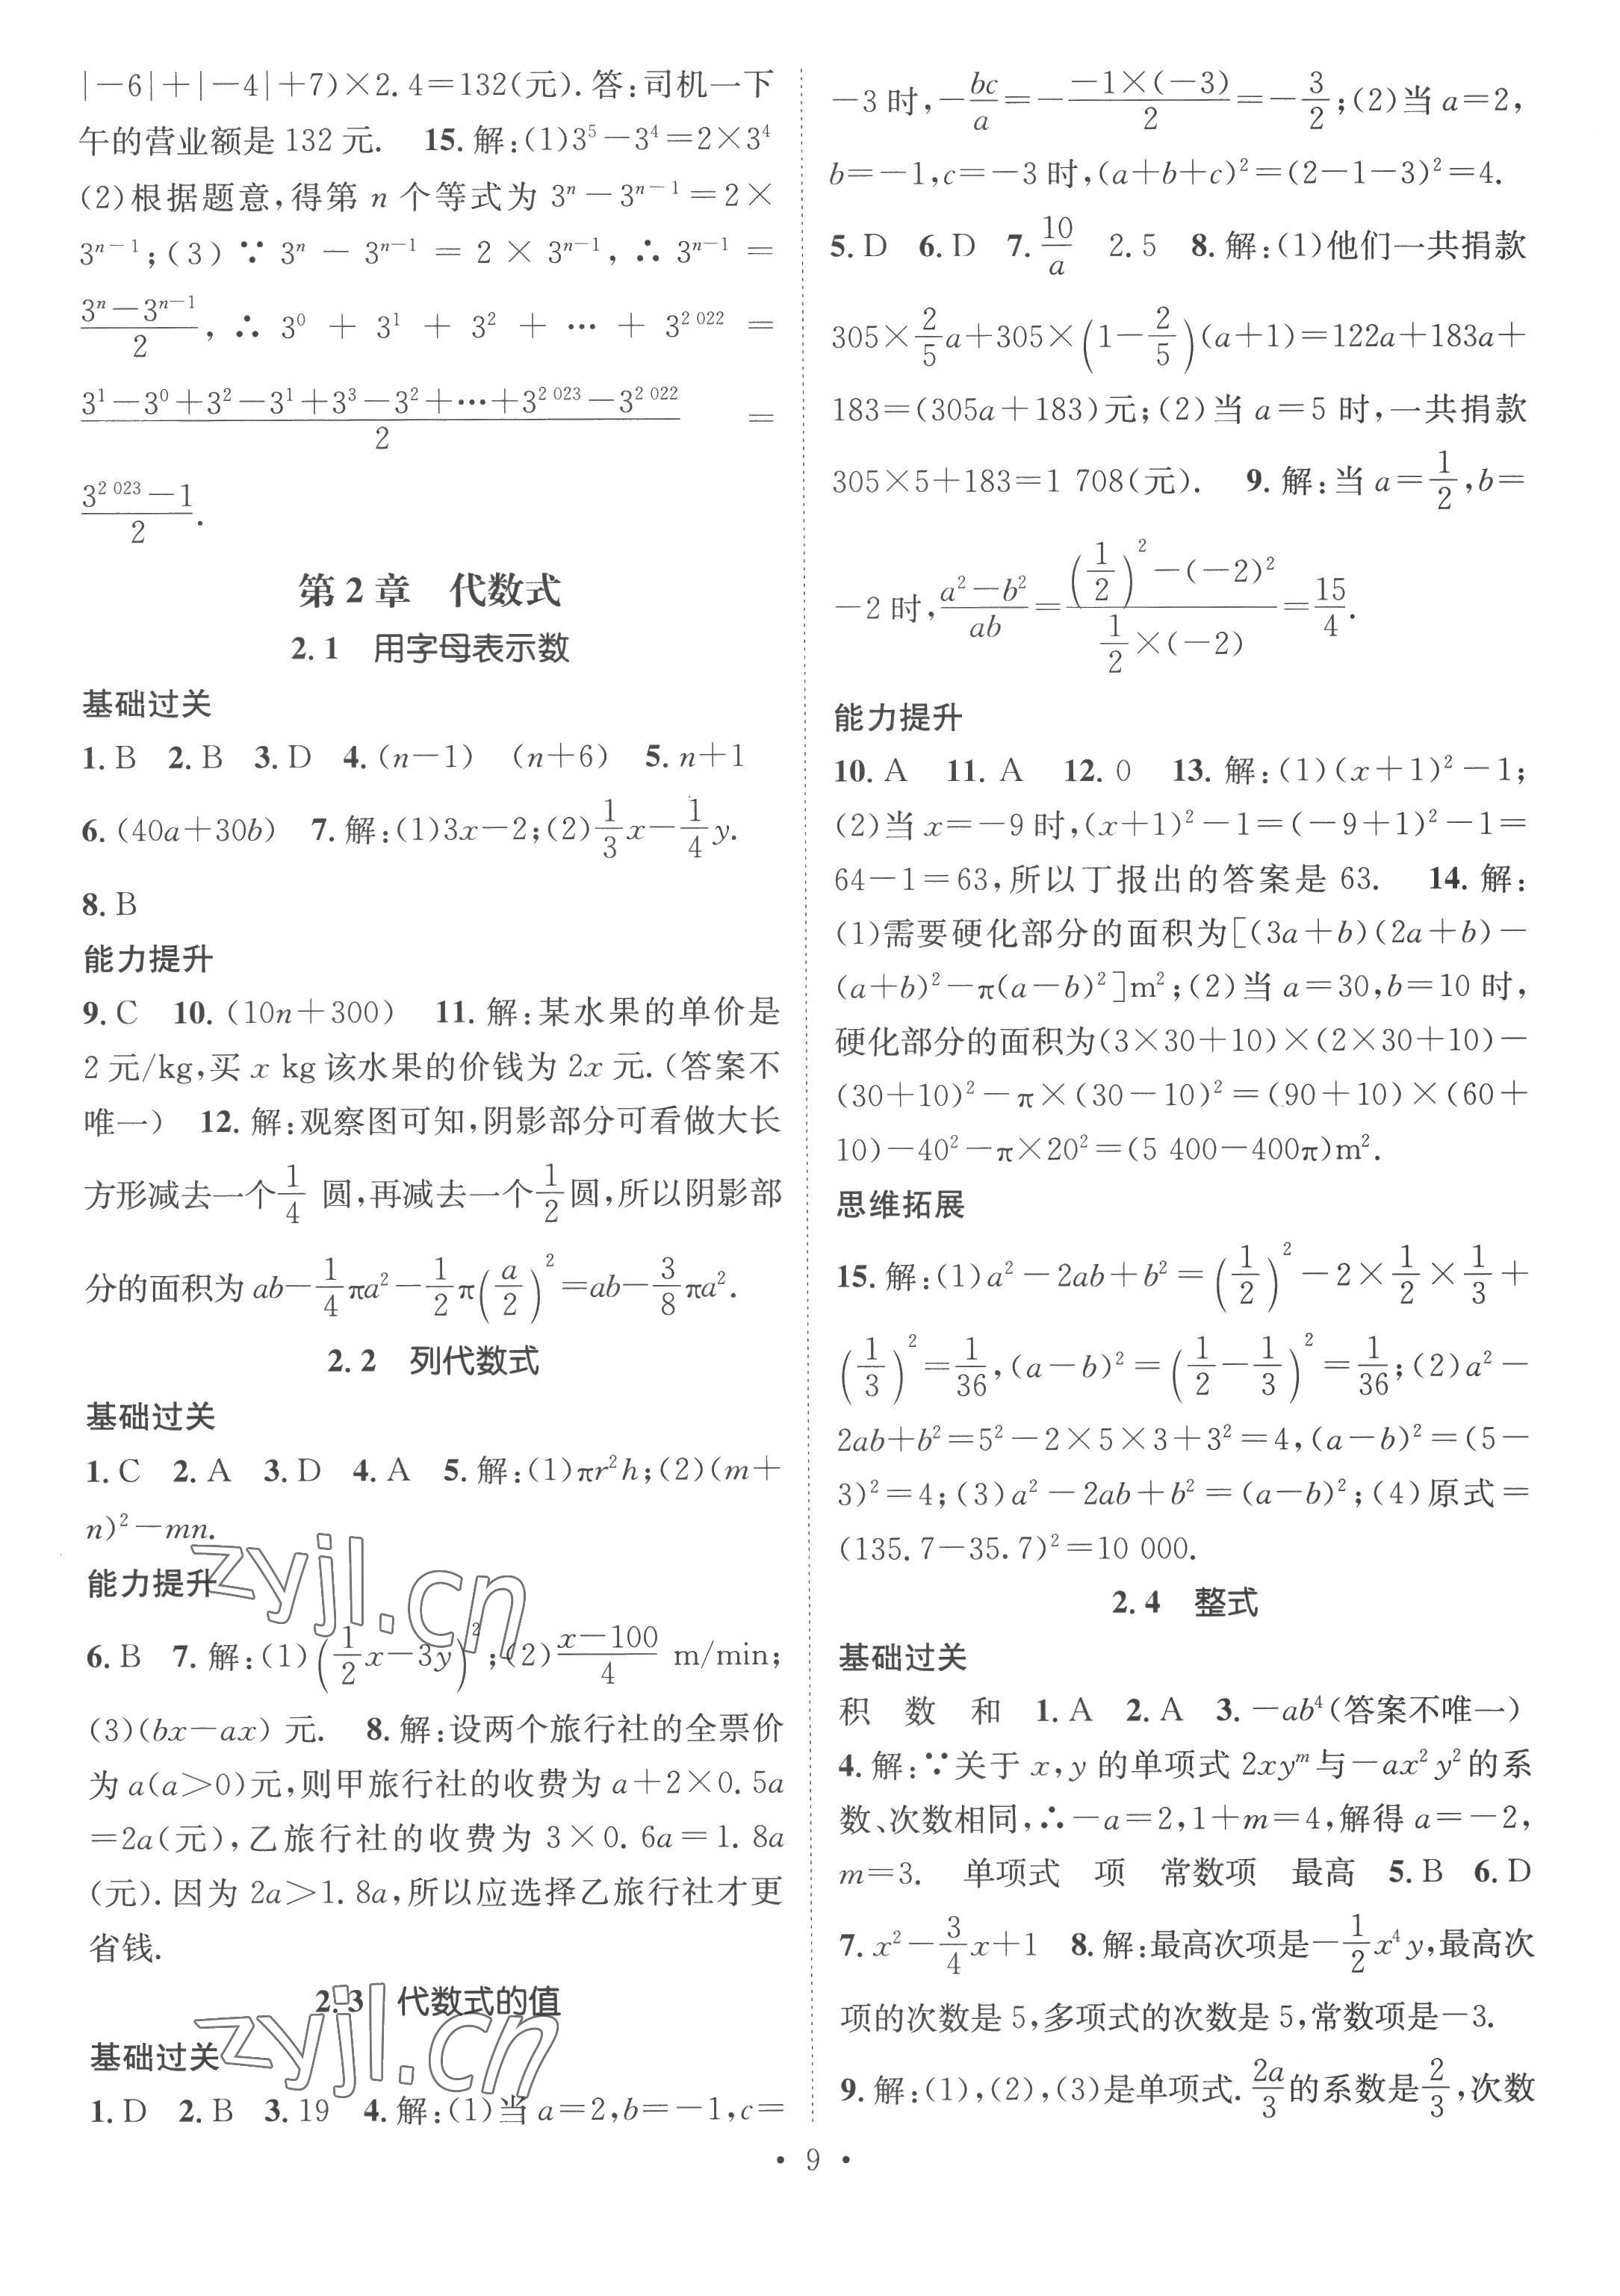 |−6|+|−4|+7)×2.4=132(元).答:司机一下
午的营业额是 132 元. 15.解:(1)3⁵−3⁴=2×3⁴
(2)根据题意,得第 n 个等式为 3ⁿ−3ⁿ⁻¹=2×
3ⁿ⁻¹;(3)∵3ⁿ−3ⁿ⁻¹=2×3ⁿ⁻¹,∴3ⁿ⁻¹=
(3ⁿ−3ⁿ⁻¹)/2,∴3⁰+3¹+3²+…+3^(2 022)=
(3¹−3⁰+3²−3¹+3³−3²+…+3^(2 023)−3^(2 022))/2 =
(3^(2 023)−1)/2.
第 2 章 代数式
2.1 用字母表示数
基础过关
1.B 2.B 3.D 4.(n−1) (n+6) 5.n+1
6.(40a+30b) 7.解:(1)3x−2;(2)1/3 x−1/4 y.
8.B
能力提升
9.C 10.(10n+300) 11.解:某水果的单价是
2 元/kg,买 x kg 该水果的价钱为 2x 元.(答案不
唯一) 12.解:观察图可知,阴影部分可看做大长
方形减去一个 1/4 圆,再减去一个 1/2 圆,所以阴影部
分的面积为 ab−1/4 πa²−1/2 π(a/2)²=ab−3/8 πa².
2.2 列代数式
基础过关
1.C 2.A 3.D 4.A 5.解:(1)πr²h;(2)(m+
n)²−mn.
能力提升
6.B 7.解:(1)(1/2 x−3y)²;(2)(x−100)/4 m/min;
(3)(bx−ax) 元. 8.解:设两个旅行社的全票价
为 a(a>0)元,则甲旅行社的收费为 a+2×0.5a
=2a(元),乙旅行社的收费为 3×0.6a=1.8a
(元).因为 2a>1.8a,所以应选择乙旅行社才更
省钱.
2.3 代数式的值
基础过关
1.D 2.B 3.19 4.解:(1)当 a=2,b=−1,c=
−3 时,−bc/a=−(−1×(−3))/2=−3/2;(2)当 a=2,
b=−1,c=−3 时,(a+b+c)²=(2−1−3)²=4.
5.D 6.D 7.10/a 2.5 8.解:(1)他们一共捐款
305×2/5 a+305×(1−2/5)(a+1)=122a+183a+
183=(305a+183)元;(2)当 a=5 时,一共捐款
305×5+183=1 708(元). 9.解:当 a=1/2,b=
−2 时,(a²−b²)/ab=((1/2)²−(−2)²)/(1/2×(−2))=15/4.
能力提升
10.A 11.A 12.0 13.解:(1)(x+1)²−1;
(2)当 x=−9 时,(x+1)²−1=(−9+1)²−1=
64−1=63,所以丁报出的答案是 63. 14.解:
(1)需要硬化部分的面积为[(3a+b)(2a+b)−
(a+b)²−π(a−b)²]m²;(2)当 a=30,b=10 时,
硬化部分的面积为(3×30+10)×(2×30+10)−
(30+10)²−π×(30−10)²=(90+10)×(60+
10)−40²−π×20²=(5 400−400π)m².
思维拓展
15.解:(1)a²−2ab+b²=(1/2)²−2×1/2×1/3+
(1/3)²=1/36,(a−b)²=(1/2−1/3)²=1/36;(2)a²−
2ab+b²=5²−2×5×3+3²=4,(a−b)²=(5−
3)²=4;(3)a²−2ab+b²=(a−b)²;(4)原式=
(135.7−35.7)²=10 000.
2.4 整式
基础过关
积 数 和 1.A 2.A 3.−ab⁴(答案不唯一)
4.解:∵关于 x,y 的单项式 2xyᵐ与−ax²y²的系
数、次数相同,∴−a=2,1+m=4,解得 a=−2,
m=3. 单项式 项 常数项 最高 5.B 6.D
7.x²−3/4 x+1 8.解:最高次项是−1/2 x⁴y,最高次
项的次数是 5,多项式的次数是 5,常数项是−3.
9.解:(1),(2),(3)是单项式.2a/3 的系数是 2/3,次数
· 9 ·
zyjl.cn
zyjl.cn